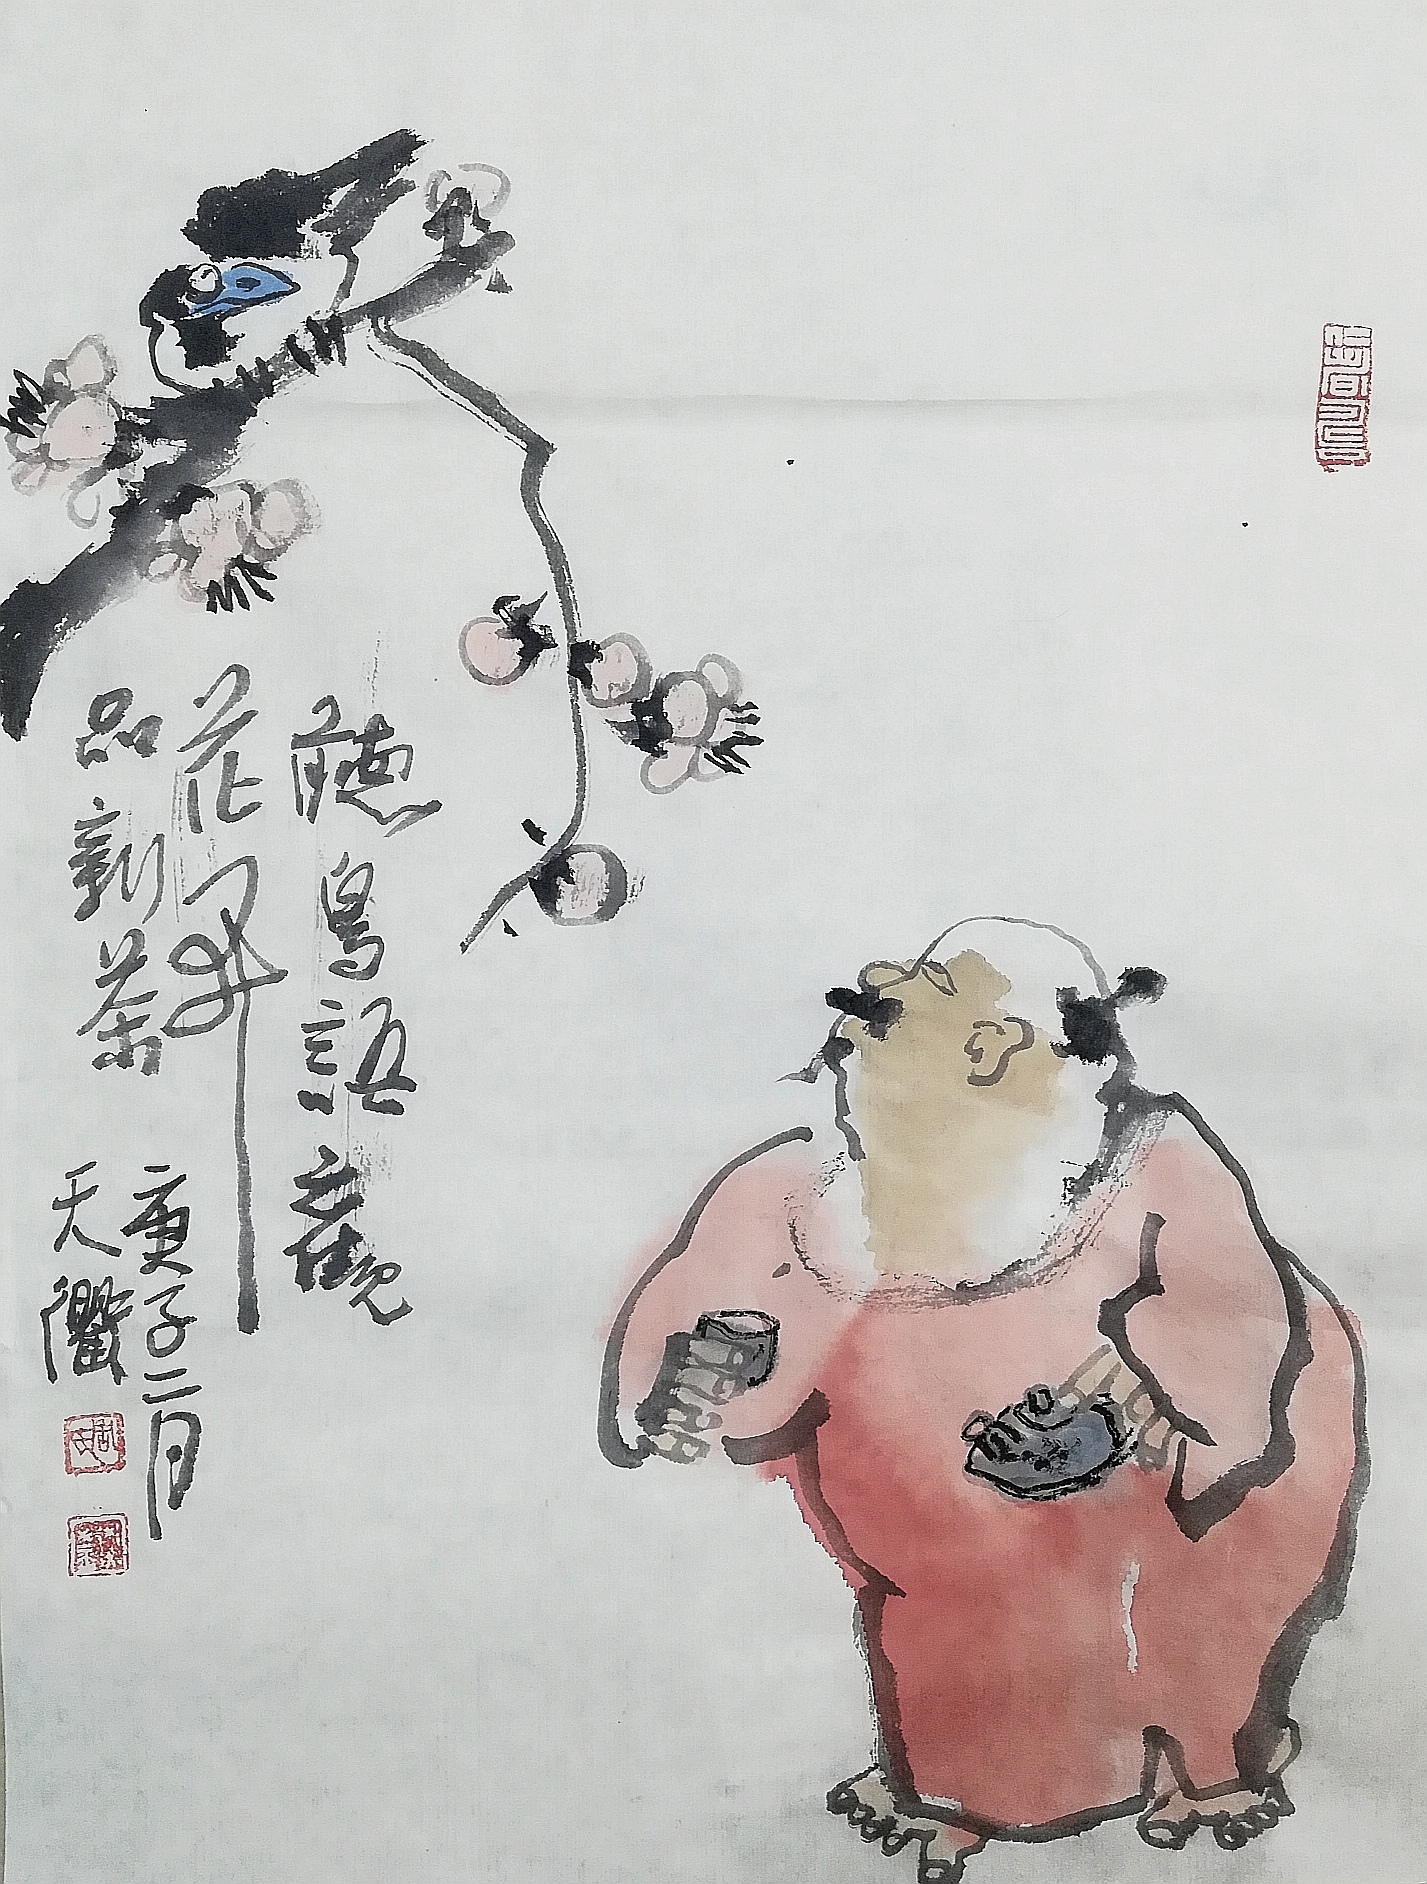 聽鳥語觀
花開
品新茶
庚子二月
天衢